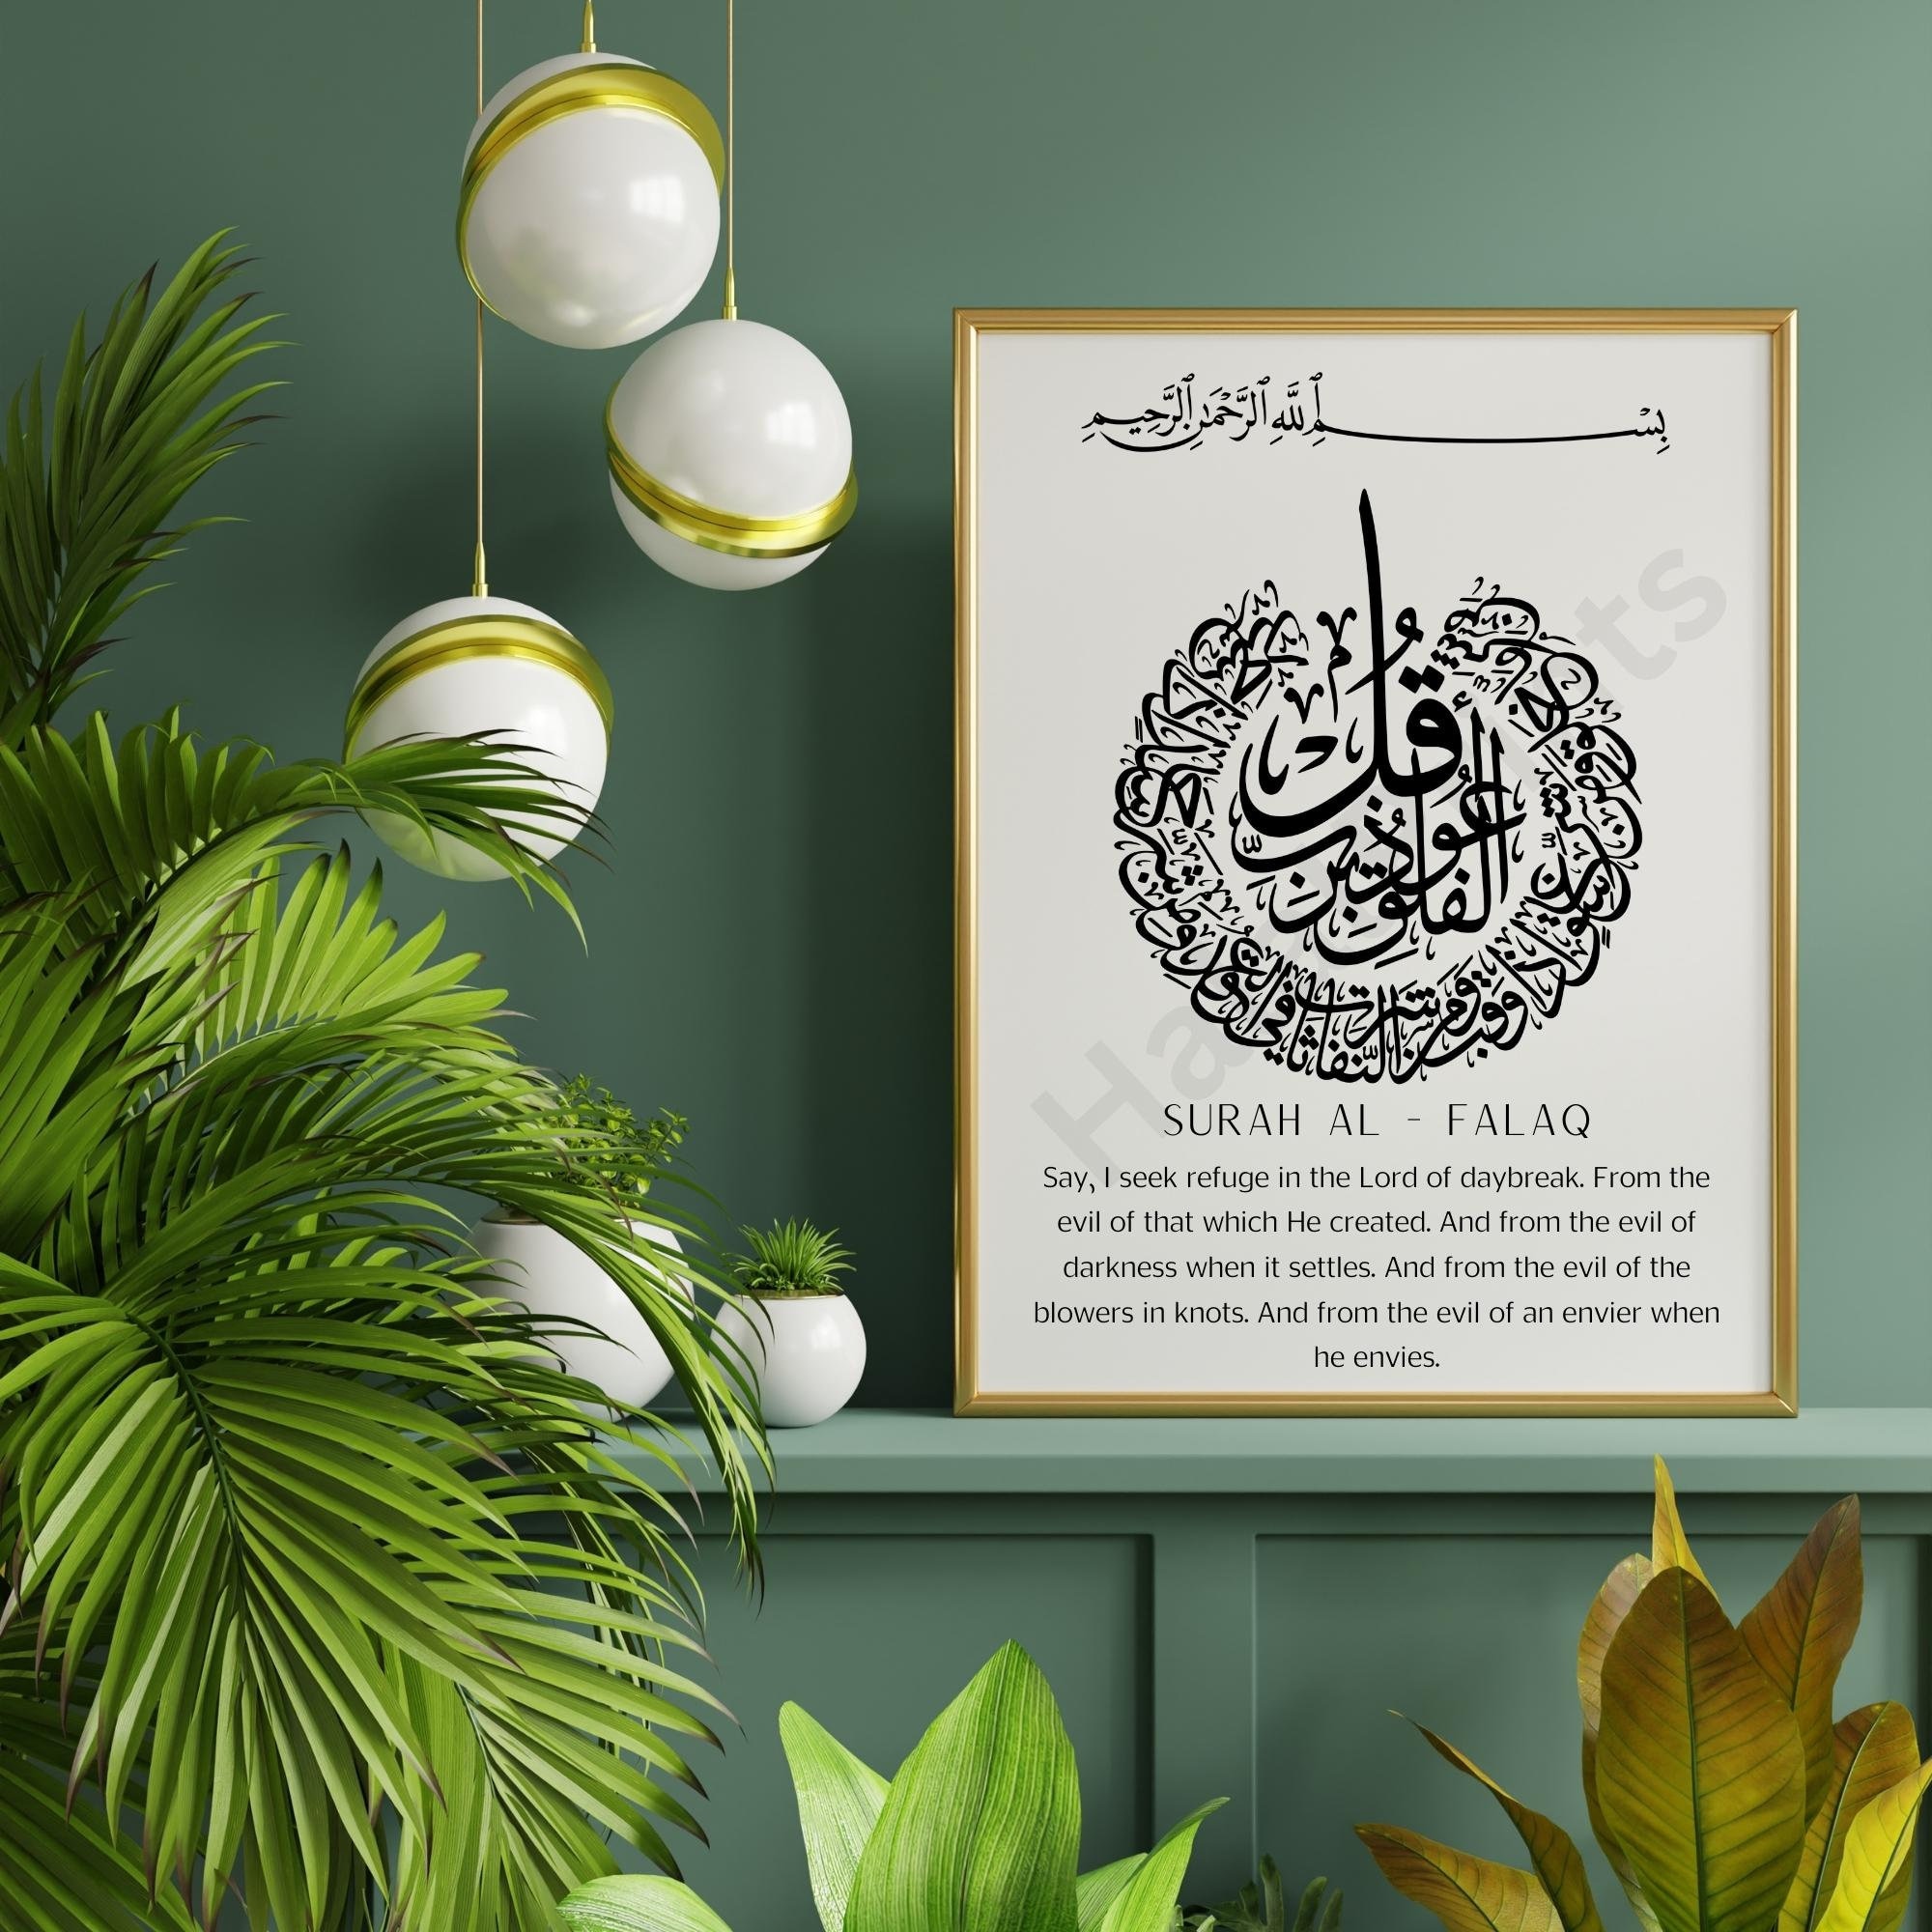 بِسْمِ ٱللَّهِ ٱلرَّحْمَٰنِ ٱلرَّحِيمِ
قُلْ أَعُوذُ بِرَبِّ الْفَلَقِ
مِنْ شَرِّ مَا خَلَقَ وَمِنْ شَرِّ غَاسِقٍ إِذَا وَقَبَ وَمِنْ شَرِّ النَّفَّاثَاتِ فِي الْعُقَدِ وَمِنْ شَرِّ حَاسِدٍ إِذَا حَسَدَ
SURAH AL - FALAQ
Say, I seek refuge in the Lord of daybreak. From the
evil of that which He created. And from the evil of
darkness when it settles. And from the evil of the
blowers in knots. And from the evil of an envier when
he envies.